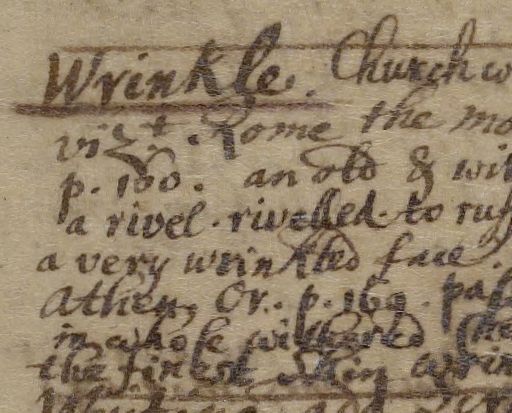 Wrinkle. Church w
vizt. Rome the mo
p. 160. an old & wi
a rivel. rivelled. to ruf
a very wrinkled face.
Athen. Or. p. 169. pas
in whose withered
the finest skin wrin